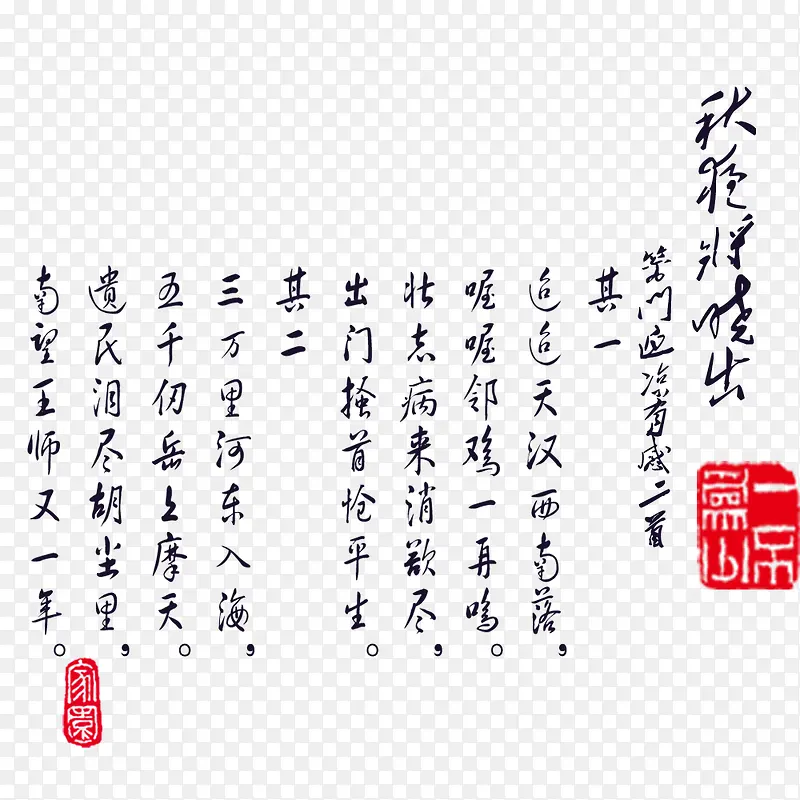 秋夜将晓出
篱门迎凉有感二首
其一
迢迢天汉西南落，
喔喔邻鸡一再鸣。
壮志病来消欲尽，
出门搔首怆平生。
其二
三万里河东入海，
五千仞岳上摩天。
遗民泪尽胡尘里，
南望王师又一年。
家園